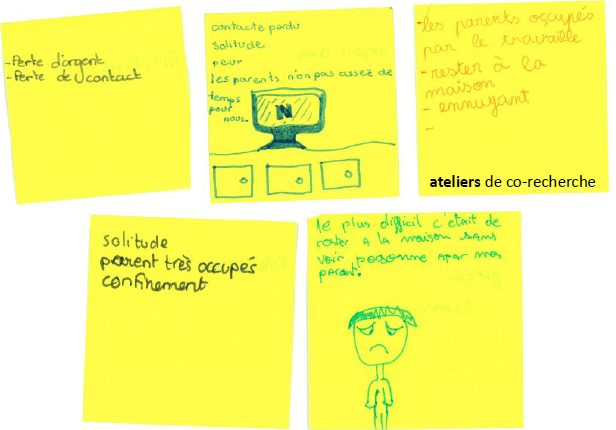 -Perte d'argent
-Perte de contact
contacte perdu
solitude
peur
les parents n'on pas assez de
temps
pour
nous.
N
-les parents occupés
par le travaille
-rester à la
maison
-ennuyant
-
ateliers de co-recherche
solitude
parent très occupés
confinement
le plus difficil c'était de
rester a la maison sans
voir personne apar mes
parent.